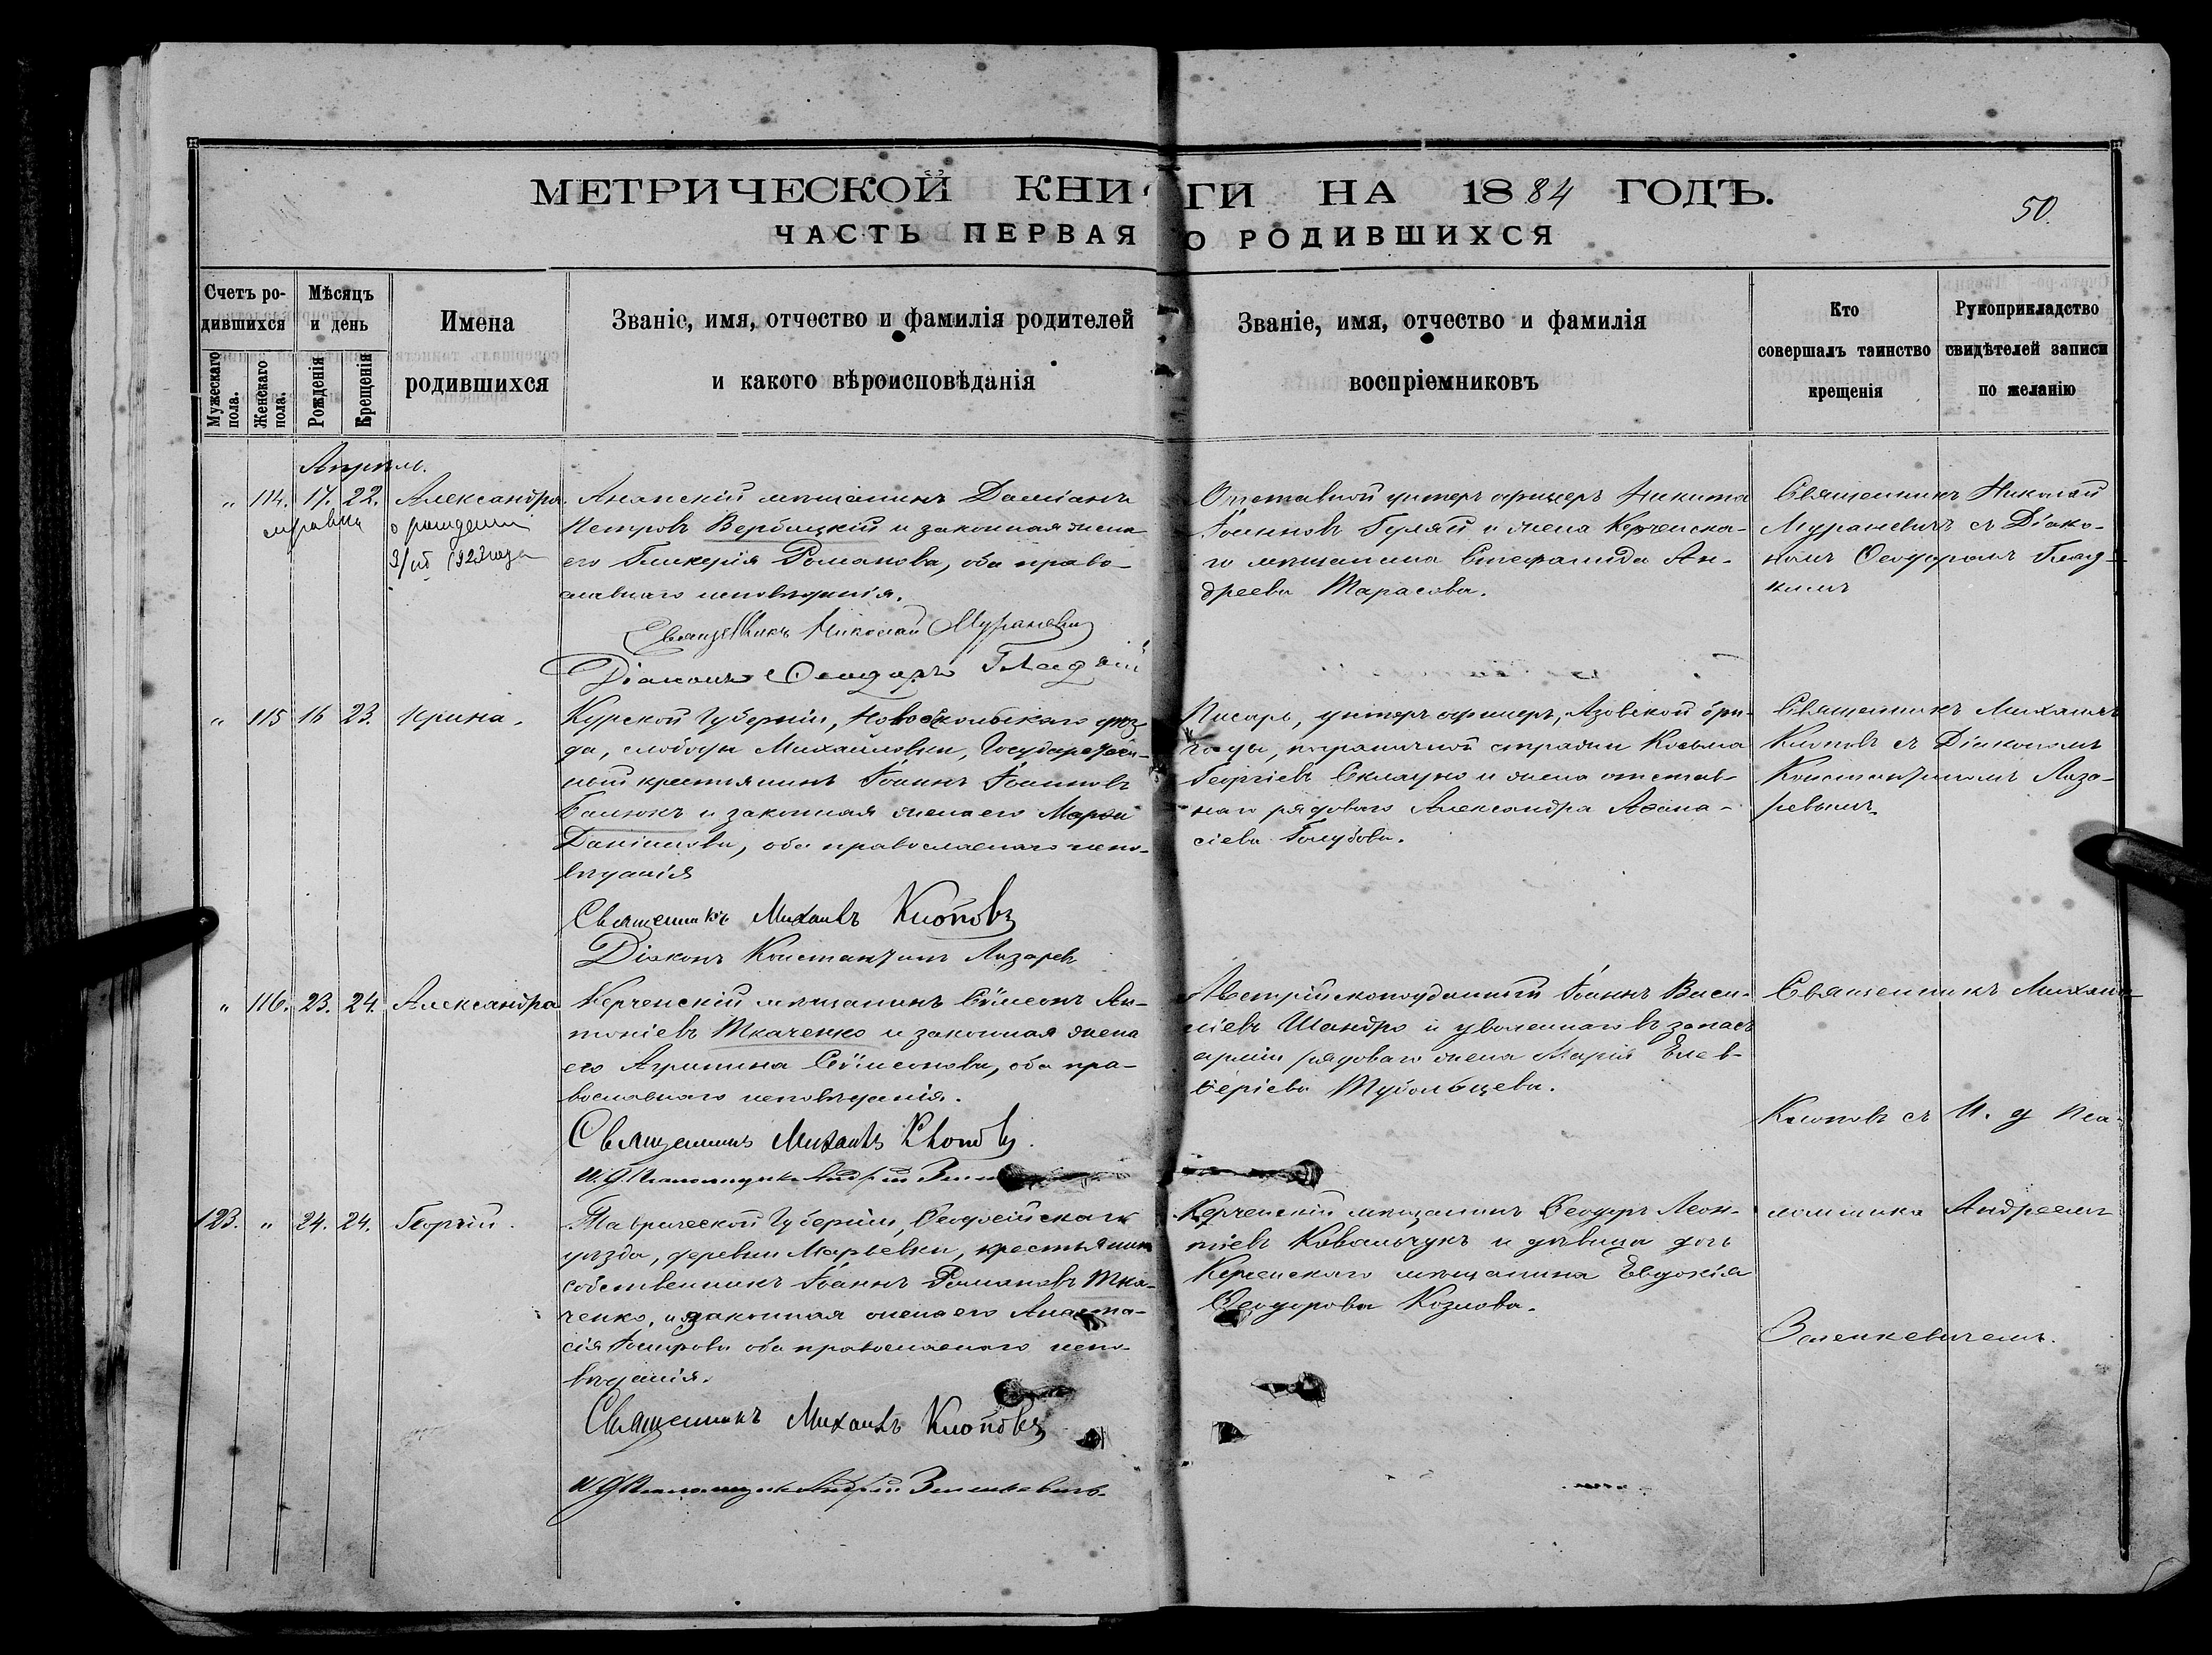 МЕТРИЧЕСКОЙ КНИГИ НА 1884 ГОДЪ.
50.
ЧАСТЬ ПЕРВАЯ О РОДИВШИХСЯ
Счетъ родившихся
Мужескаго пола.
Женскаго пола.
Мѣсяцъ и день
Рожденія
Крещенія
Имена родившихся
Званіе, имя, отчество и фамилія родителей
и какого вѣроисповѣданія
Званіе, имя, отчество и фамилія
воспріемниковъ
Кто
совершалъ таинство
крещенія
Рукоприкладство
свидѣтелей записи
по желанію
Апрѣль.
" 114. 17. 22. Александра.
справка о рожденіи
1923 года
Анапскій мѣщанинъ Даміанъ
Петровъ Вербицкій и законная жена
его Гликерія Романова, оба право-
славнаго исповѣданія.
Священникъ Николай Мураневичъ
Діаконъ Ѳеодоръ Гладкій
Отставной унтеръ офицеръ Никита
Іоанновъ Гуляй и жена Керченска-
го мѣщанина Стефанида Ан-
дреева Тарасова.
Священникъ Николай
Мураневичъ съ Діако-
номъ Ѳеодоромъ Глад-
кимъ
" 115 16 23. Ирина.
Курской Губерніи, Новооскольскаго уѣз-
да, слободы Михайловки, Государствен-
ный крестьянинъ Іоаннъ Іоанновъ
Банюкъ и законная жена его Марѳа
Даніилова, оба православнаго испо-
вѣданія
Священникъ Михаилъ Клоповъ
Діаконъ Константинъ Лазаревъ
Писарь, унтеръ офицеръ, Азовской бри-
гады, пограничной стражи Косьма
Георгіевъ Склауно и жена отстав-
наго рядоваго Александра Аѳана-
сіева Голубова.
Священникъ Михаилъ
Клоповъ съ Діакономъ
Константиномъ Лаза-
ревымъ.
" 116. 23. 24. Александра
Керченскій мѣщанинъ Сѵмеонъ Ан-
тоніевъ Ткаченко и законная жена
его Агрипина Сѵмеонова, оба пра-
вославнаго исповѣданія.
Священникъ Михаилъ Клоповъ.
И. д. Псаломщика Андрей
Австрійскоподданный Іоаннъ Васи-
ліевъ Шандро и уволеннаго въ запасъ
арміи рядоваго жена Марія Елев-
ѳеріева Тубольцева.
Священникъ Михаилъ
Клоповъ съ И. д. Пса-
123. " 24. 24. Георгій.
Таврической Губерніи, Ѳеодосійскаго
уѣзда, деревни Марьевки, крестьянинъ
собственникъ Іоаннъ Романовъ Тка-
ченко, и законная жена его Анаста-
сія Іосифова оба православнаго испо-
вѣданія.
Священникъ Михаилъ Клоповъ
И. д. Псаломщика Андрей Зеленкевичъ.
Керченскій мѣщанинъ Ѳеодоръ Леон-
тіевъ Ковальчукъ и дѣвица дочь
Керченскаго мѣщанина Евдокія
Ѳеодорова Козлова.
ломщика Андреемъ
Зеленкевичемъ.